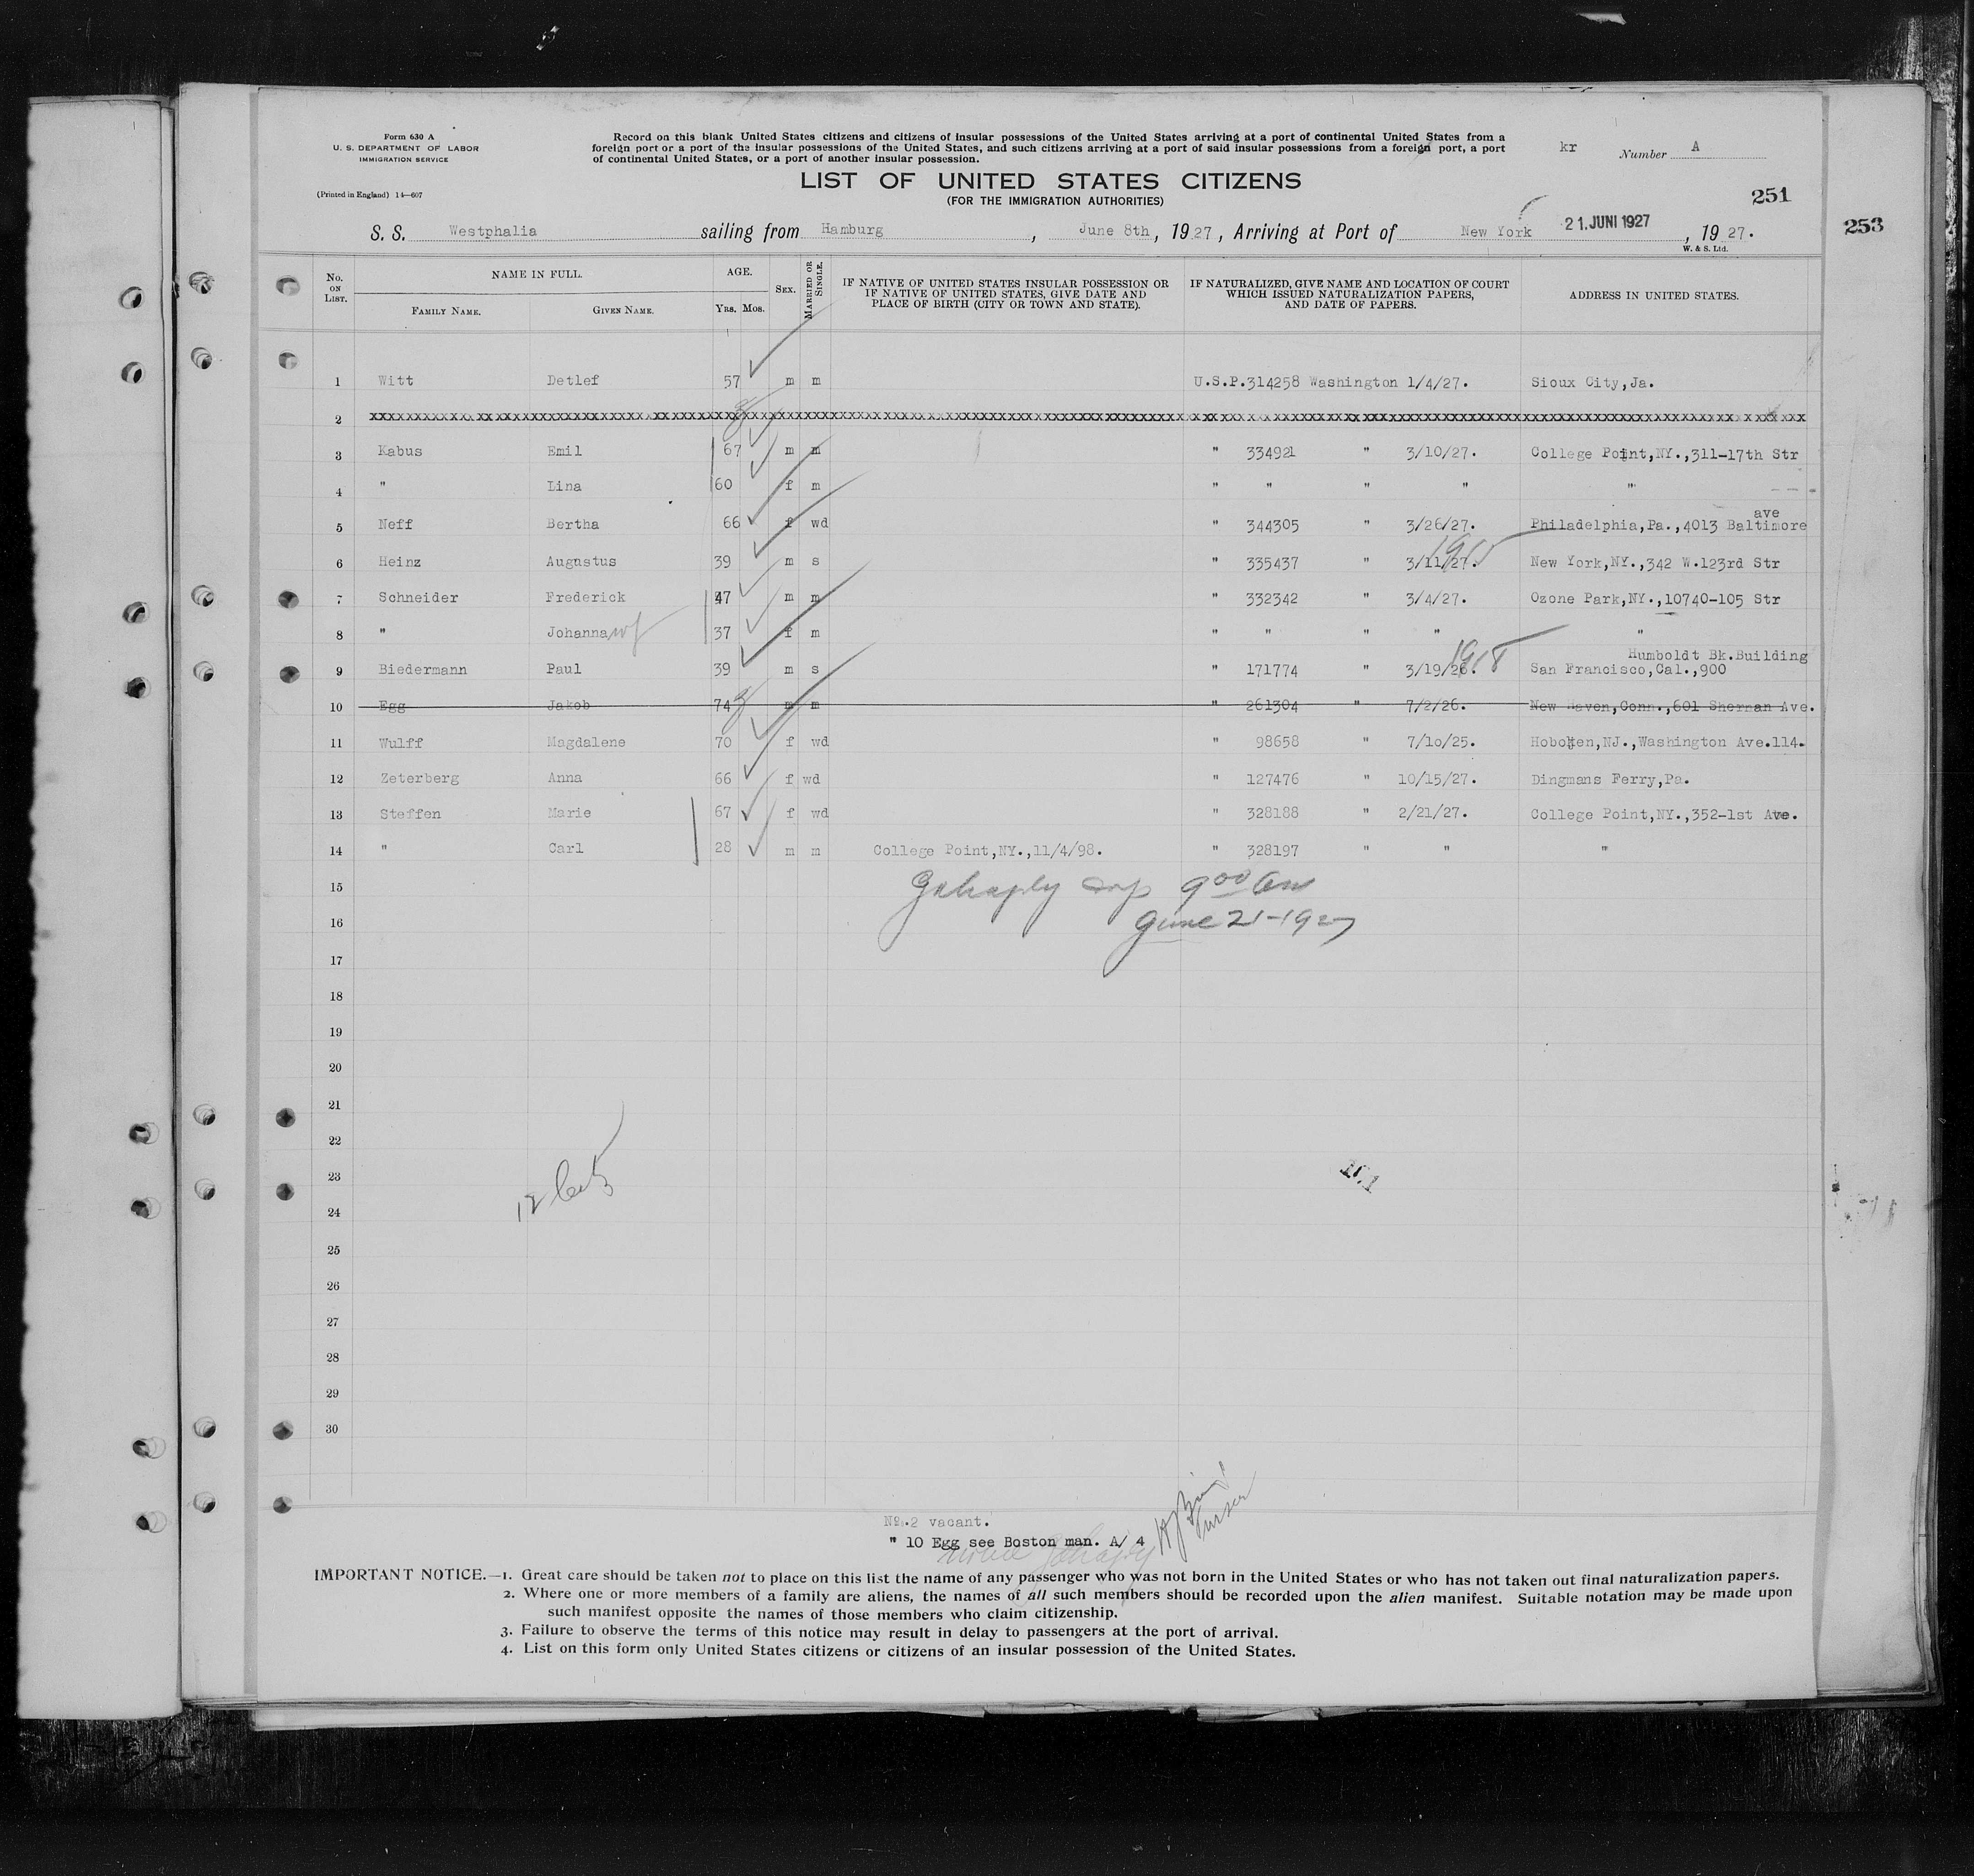 Form 630 A
U. S. DEPARTMENT OF LABOR
IMMIGRATION SERVICE
(Printed in England) 14—607
Record on this blank United States citizens and citizens of insular possessions of the United States arriving at a port of continental United States from a
foreign port or a port of the insular possessions of the United States, and such citizens arriving at a port of said insular possessions from a foreign port, a port
of continental United States, or a port of another insular possession.
kr Number A
LIST OF UNITED STATES CITIZENS
(FOR THE IMMIGRATION AUTHORITIES)
251
253
S. S. Westphalia sailing from Hamburg, June 8th, 1927, Arriving at Port of New York 21. JUNI 1927, 1927.
W. & S. Ltd.
No. ON LIST. NAME IN FULL. AGE. SEX. MARRIED OR SINGLE. IF NATIVE OF UNITED STATES INSULAR POSSESSION OR IF NATIVE OF UNITED STATES, GIVE DATE AND PLACE OF BIRTH (CITY OR TOWN AND STATE). IF NATURALIZED, GIVE NAME AND LOCATION OF COURT WHICH ISSUED NATURALIZATION PAPERS, AND DATE OF PAPERS. ADDRESS IN UNITED STATES.
FAMILY NAME. GIVEN NAME. YRS. MOS.
1 Witt Detlef 57 m m U.S.P.314258 Washington 1/4/27. Sioux City,Ja.
2
3 Kabus Emil 67 m m " 334921 " 3/10/27. College Point,NY.,311-17th Str
4 " Lina 60 f m " " " " "
ave
5 Neff Bertha 66 f wd " 344305 " 3/26/27. Philadelphia,Pa.,4013 Baltimore
6 Heinz Augustus 39 m s " 335437 " 3/11/27. New York,NY.,342 W.123rd Str
7 Schneider Frederick 47 m m " 332342 " 3/4/27. Ozone Park,NY.,10740-105 Str
8 " Johanna wf 37 f m " " " " "
1918 Humboldt Bk.Building
9 Biedermann Paul 39 m s " 171774 " 3/19/26. San Francisco,Cal.,900
10 Egg Jakob 74 m m " 261304 " 7/2/26. New Haven,Conn.,601 Sherman Ave.
11 Wulff Magdalene 70 f wd " 98658 " 7/10/25. Hoboken,NJ.,Washington Ave.114.
12 Zeterberg Anna 66 f wd " 127476 " 10/15/27. Dingmans Ferry,Pa.
13 Steffen Marie 67 f wd " 328188 " 2/21/27. College Point,NY.,352-1st Ave.
14 " Carl 28 m m College Point,NY.,11/4/98. " 328197 " " "
15 9 00 am
16 June 21-1927
17
18
19
20
21
22
23
24
25
26
27
28
29
30
No.2 vacant.
" 10 Egg see Boston man. A/ 4
Purser
IMPORTANT NOTICE.—1. Great care should be taken not to place on this list the name of any passenger who was not born in the United States or who has not taken out final naturalization papers.
2. Where one or more members of a family are aliens, the names of all such members should be recorded upon the alien manifest. Suitable notation may be made upon
such manifest opposite the names of those members who claim citizenship.
3. Failure to observe the terms of this notice may result in delay to passengers at the port of arrival.
4. List on this form only United States citizens or citizens of an insular possession of the United States.